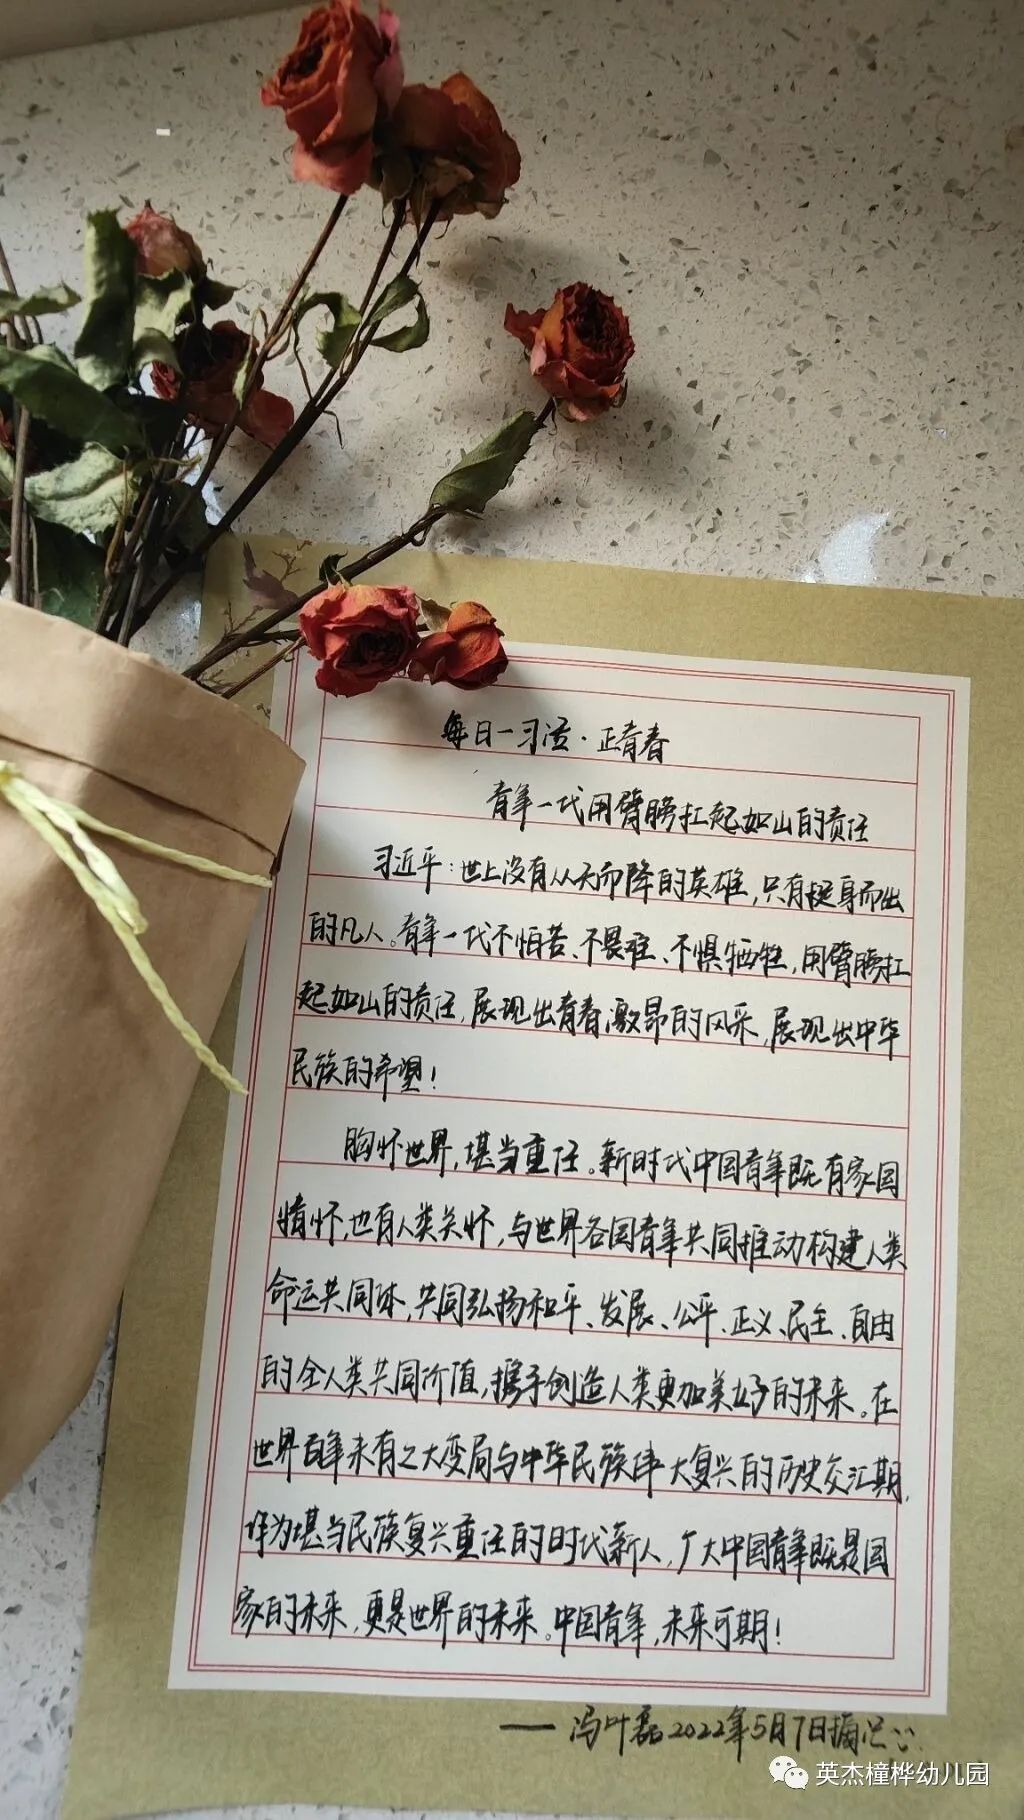 每日一习话·正青春
青年一代用臂膀扛起如山的责任
习近平：世上没有从天而降的英雄，只有挺身而出
的凡人。青年一代不怕苦、不畏难、不惧牺牲，用臂膀扛
起如山的责任，展现出青春激昂的风采，展现出中华
民族的希望！
胸怀世界，堪当重任。新时代中国青年既有家国
情怀，也有人类关怀，与世界各国青年共同推动构建人类
命运共同体，共同弘扬和平、发展、公平、正义、民主、自由
的全人类共同价值，携手创造人类更加美好的未来。在
世界百年未有之大变局与中华民族伟大复兴的历史交汇期，
作为堪当民族复兴重任的时代新人，广大中国青年既是国
家的未来，更是世界的未来。中国青年，未来可期！
——冯叶磊2022年5月7日摘
英杰橦桦幼儿园